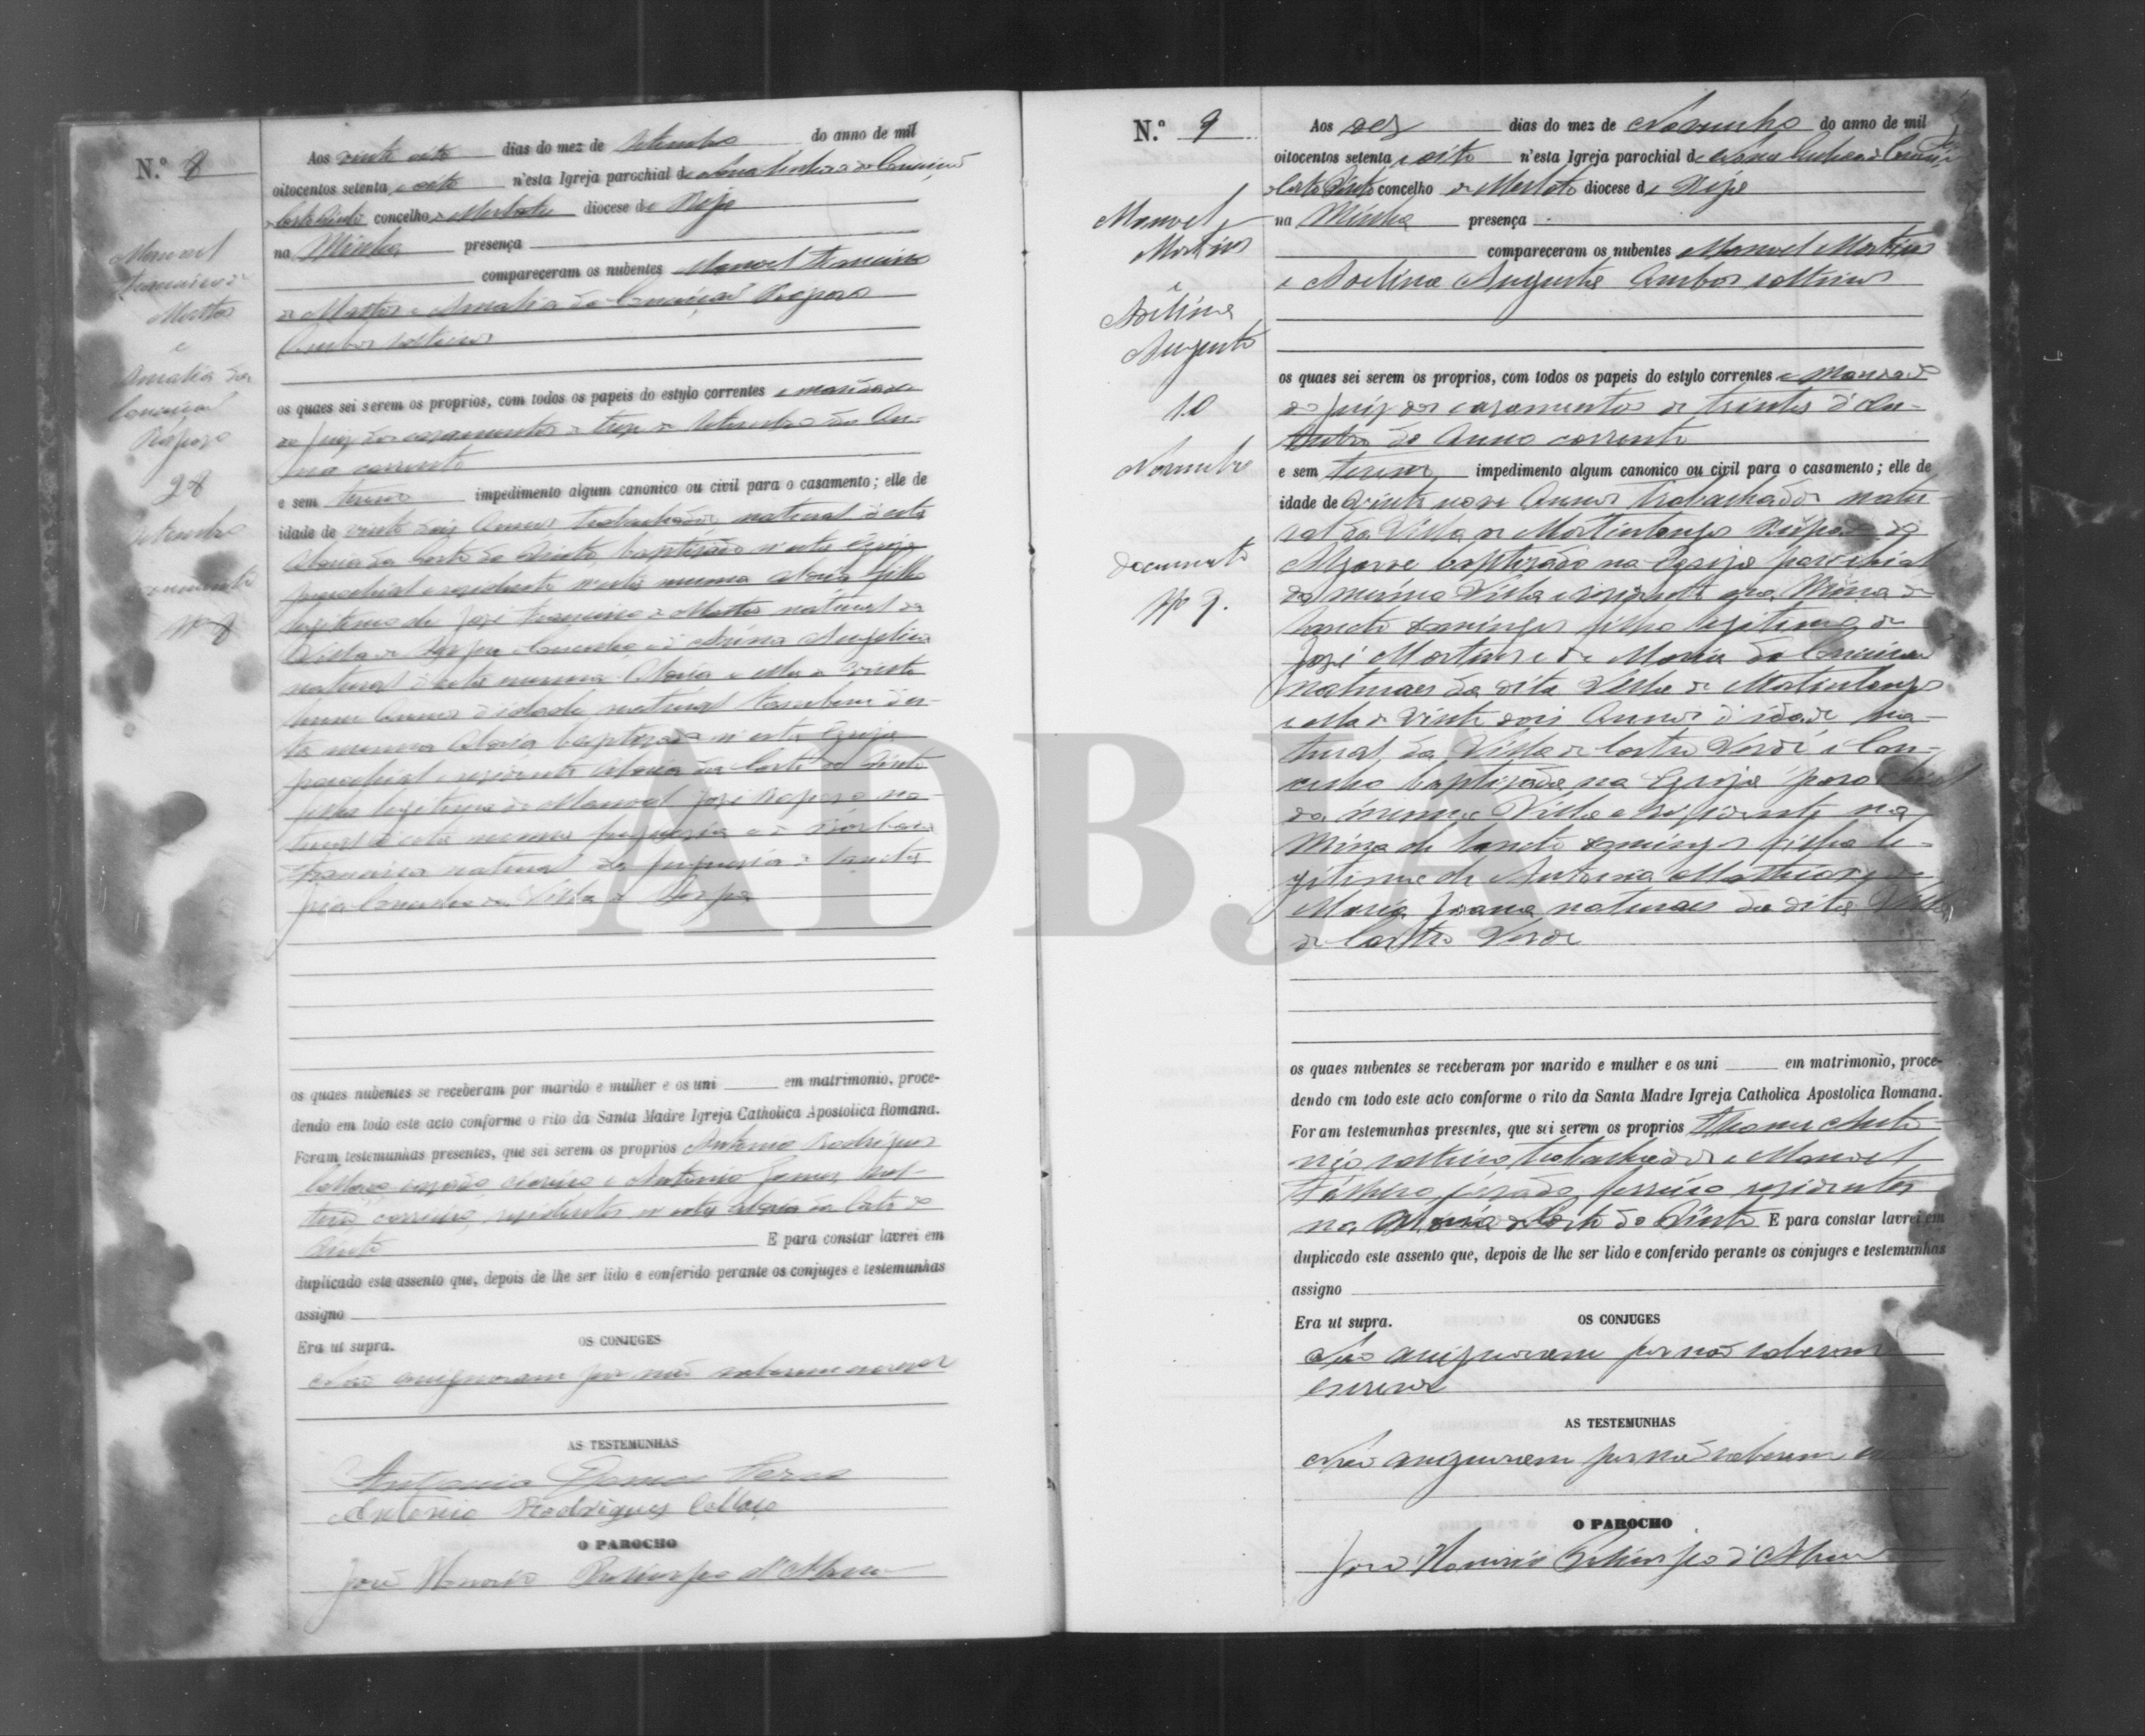 N.º 8
Manoel
Francisco de
Mattos
e
Amalia da
Conceição
Raposo
28
Setembro
Documento
Nº 8
Aos vinte oito dias do mez de Setembro do anno de mil
oitocentos setenta e oito n'esta Igreja parochial de Nossa Senhora da Conceição
da Corte do Pinto concelho de Mertola diocese de Beja
na Minha presença
compareceram os nubentes Manoel Francisco
de Mattos e Amalia da Conceição Raposo
Ambos solteiros
os quaes sei serem os proprios, com todos os papeis do estylo correntes e mandado
do Juiz dos casamentos de treze de Setembro do An-
no corrente
e sem terem impedimento algum canonico ou civil para o casamento; elle de
idade de vinte dois Annos trabalhador natural d'esta
Aldeia da Corte do Pinto, baptizado n'esta Egreja
parochial e residente n'esta mesma Aldeia filho
legitimo de José Francisco de Mattos natural da
Villa de Serpa e Concelho e de Angelica
natural d'esta mesma Aldeia e ella de vinte
Annos d'idade natural tambem des-
ta mesma Aldeia baptizada n'esta Egreja
parochial e residente Aldeia da Corte do Pinto
filha legitima de Manoel José Raposo na-
tural d'esta mesma freguesia e de Barbara
Francisca natural da freguesia de Santa
Concelho da Villa de Serpa
os quaes nubentes se receberam por marido e mulher e os uni em matrimonio, proce-
dendo em todo este acto conforme o rito da Santa Madre Igreja Catholica Apostolica Romana.
Foram testemunhas presentes, que sei serem os proprios Antonio Rodrigues
Collaço casado e Antonio Gomes sol-
teiro residentes n'esta Aldeia da Corte do
Pinto E para constar lavrei em
duplicado este assento que, depois de lhe ser lido e conferido perante os conjuges e testemunhas
assigno
Era ut supra. OS CONJUGES
Não assignaram por não saberem escrever
AS TESTEMUNHAS
Antonio Gomes
Antonio Rodrigues Collaço
O PAROCHO
José d'Abreu
N.º 9
Manoel
Martins
Adelina
Augusta
10
Novembro
Documento
Nº 9.
Aos dez dias do mez de Novembro do anno de mil
oitocentos setenta e oito n'esta Igreja parochial de Nossa Senhora da Conceição
da Corte do Pinto concelho de Mertola diocese de Beja
na Minha presença
compareceram os nubentes Manoel Martins
e Adelina Augusta Ambos solteiros
os quaes sei serem os proprios, com todos os papeis do estylo correntes e Mandado
do Juiz dos casamentos de trinta d'Ou-
tubro do Anno corrente
e sem terem impedimento algum canonico ou civil para o casamento; elle de
idade de vinte nove Annos trabalhador natu-
ral da Villa de Martinlongo Bispado do
Algarve baptizado na Egreja parochial
da mesma Villa e residente na Mina de
Sancto Domingos filho legitimo de
José Martins e de Maria da Conceição
naturaes da dita Villa de Martinlongo
e ella de vinte dois Annos d'idade na-
tural da Villa de Castro Verde e Con-
celho baptizada na Egreja parochial
da mesma Villa e residente na
Mina de Sancto Domingos filha le-
gitima de Antonio Mathias e de
Maria Joana naturaes da dita Villa
de Castro Verde
os quaes nubentes se receberam por marido e mulher e os uni em matrimonio, proce-
dendo em todo este acto conforme o rito da Santa Madre Igreja Catholica Apostolica Romana.
Foram testemunhas presentes, que sei serem os proprios Thomé Anto-
nio solteiro trabalhador e Manoel
casado ferreiro residentes
na Aldeia da Corte do Pinto E para constar lavrei em
duplicado este assento que, depois de lhe ser lido e conferido perante os conjuges e testemunhas
assigno
Era ut supra. OS CONJUGES
Não assignaram por não saberem
escrever
AS TESTEMUNHAS
Não assignaram por não saberem
O PAROCHO
José d'Abreu
ADBJA